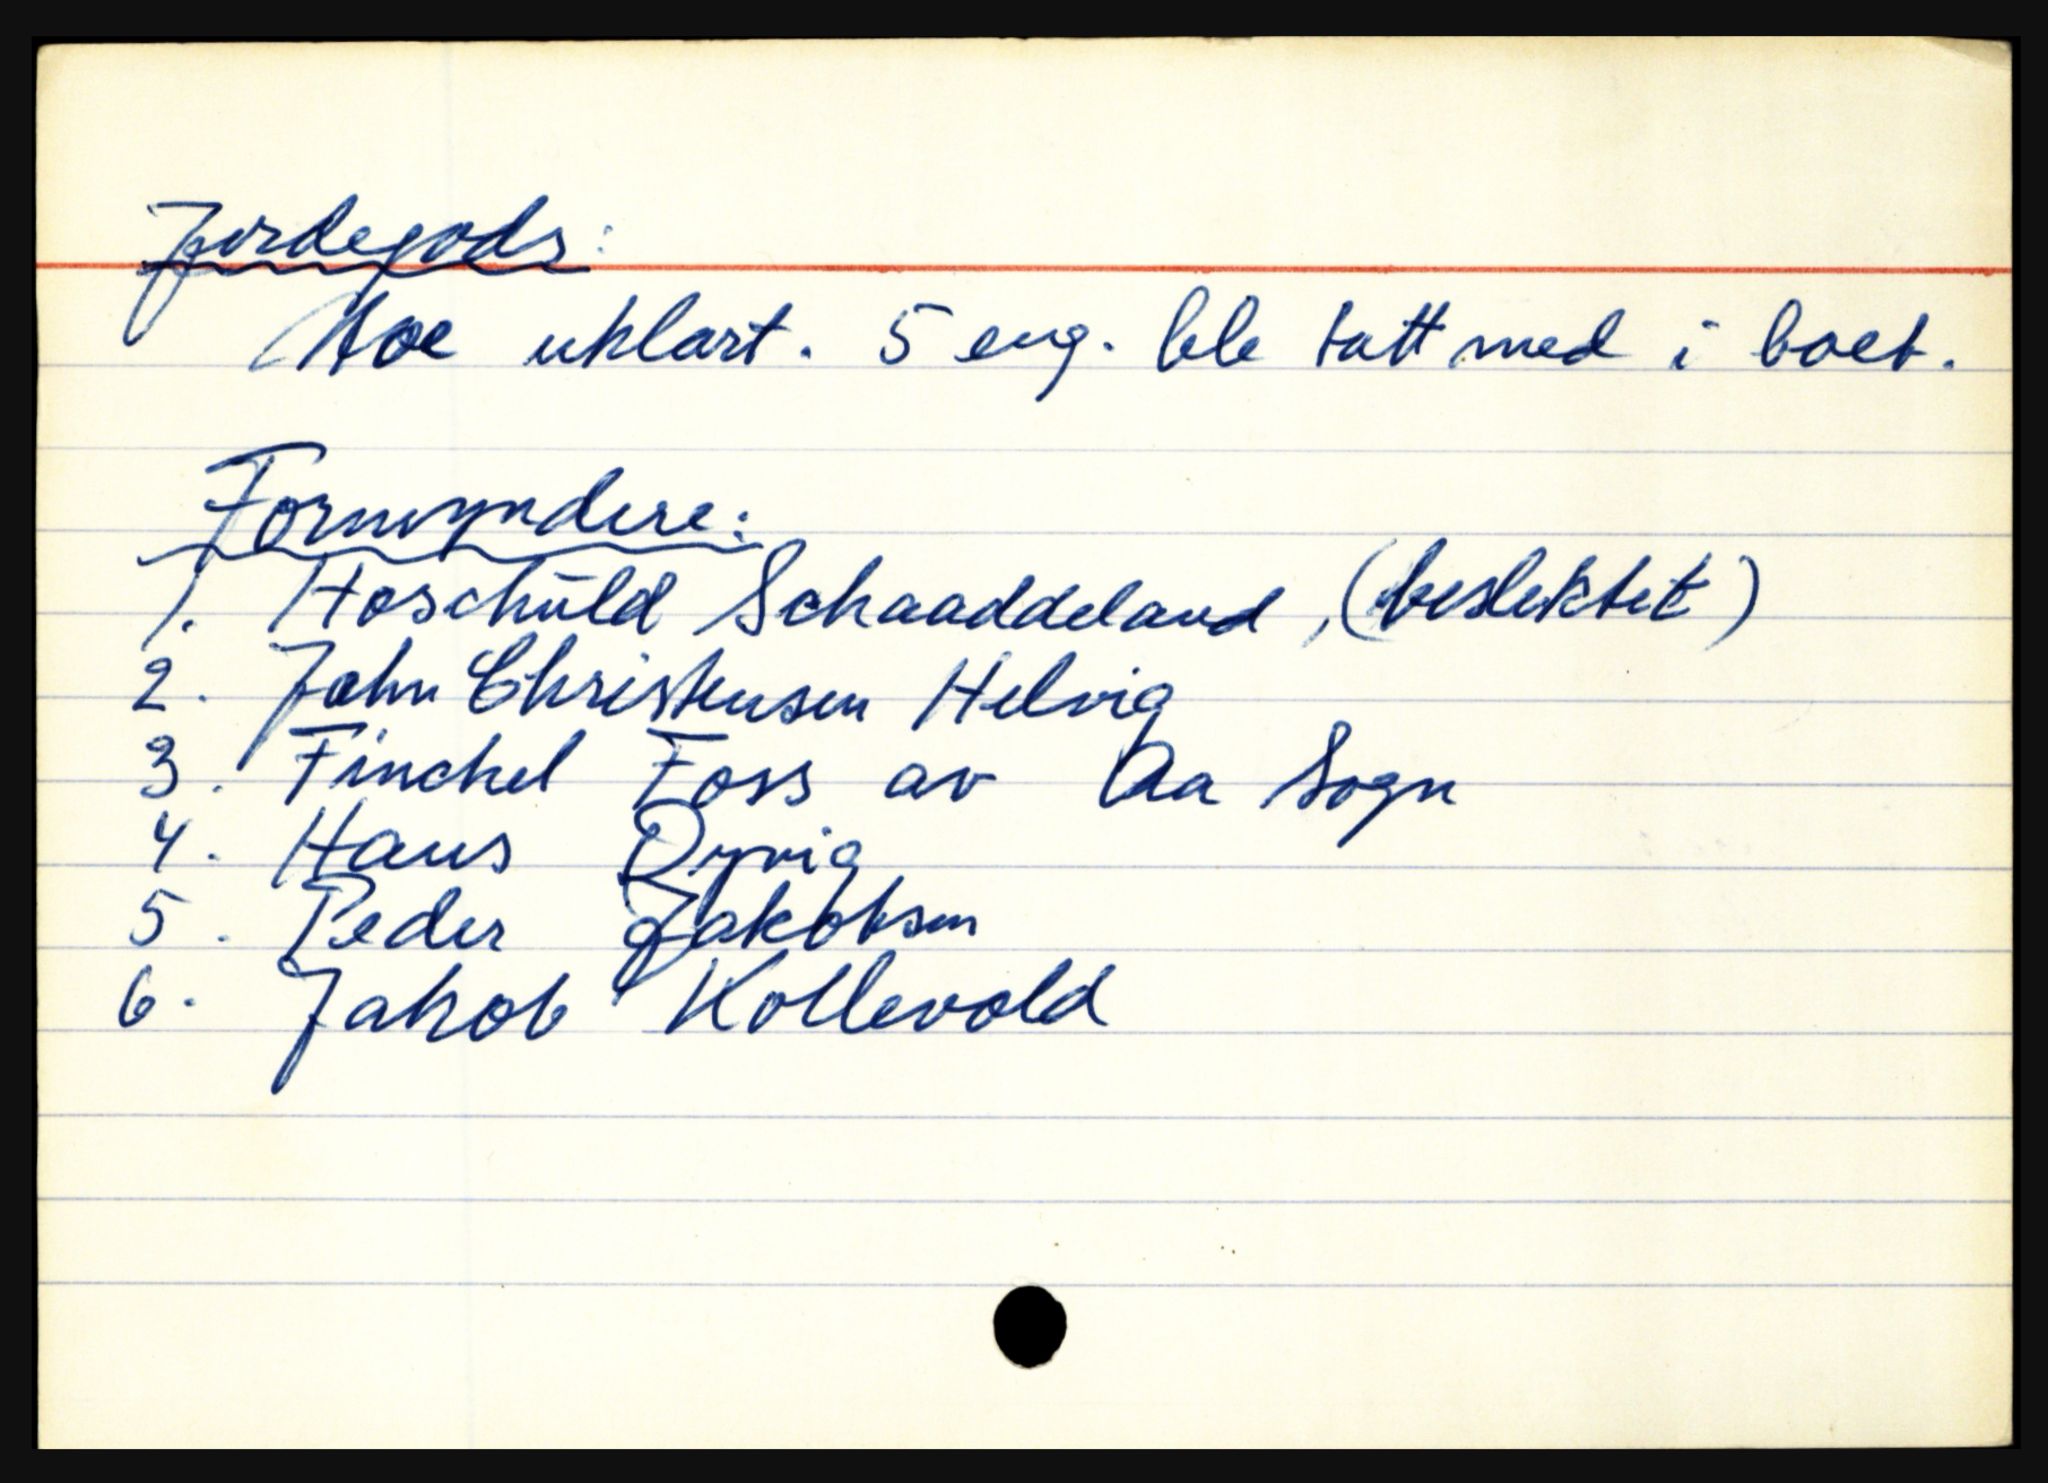 Jordegods:
Moe uklart. 5 eng. ble tatt med i boet.
Formyndere:
1. Hoschuld Schaaddeland, (beslektet)
2. John Christensen Helvig
3. Finckel Foss av Aa Sogn
4. Hans Dyvig
5. Peder Jakobsen
6. Jakob Kollevold